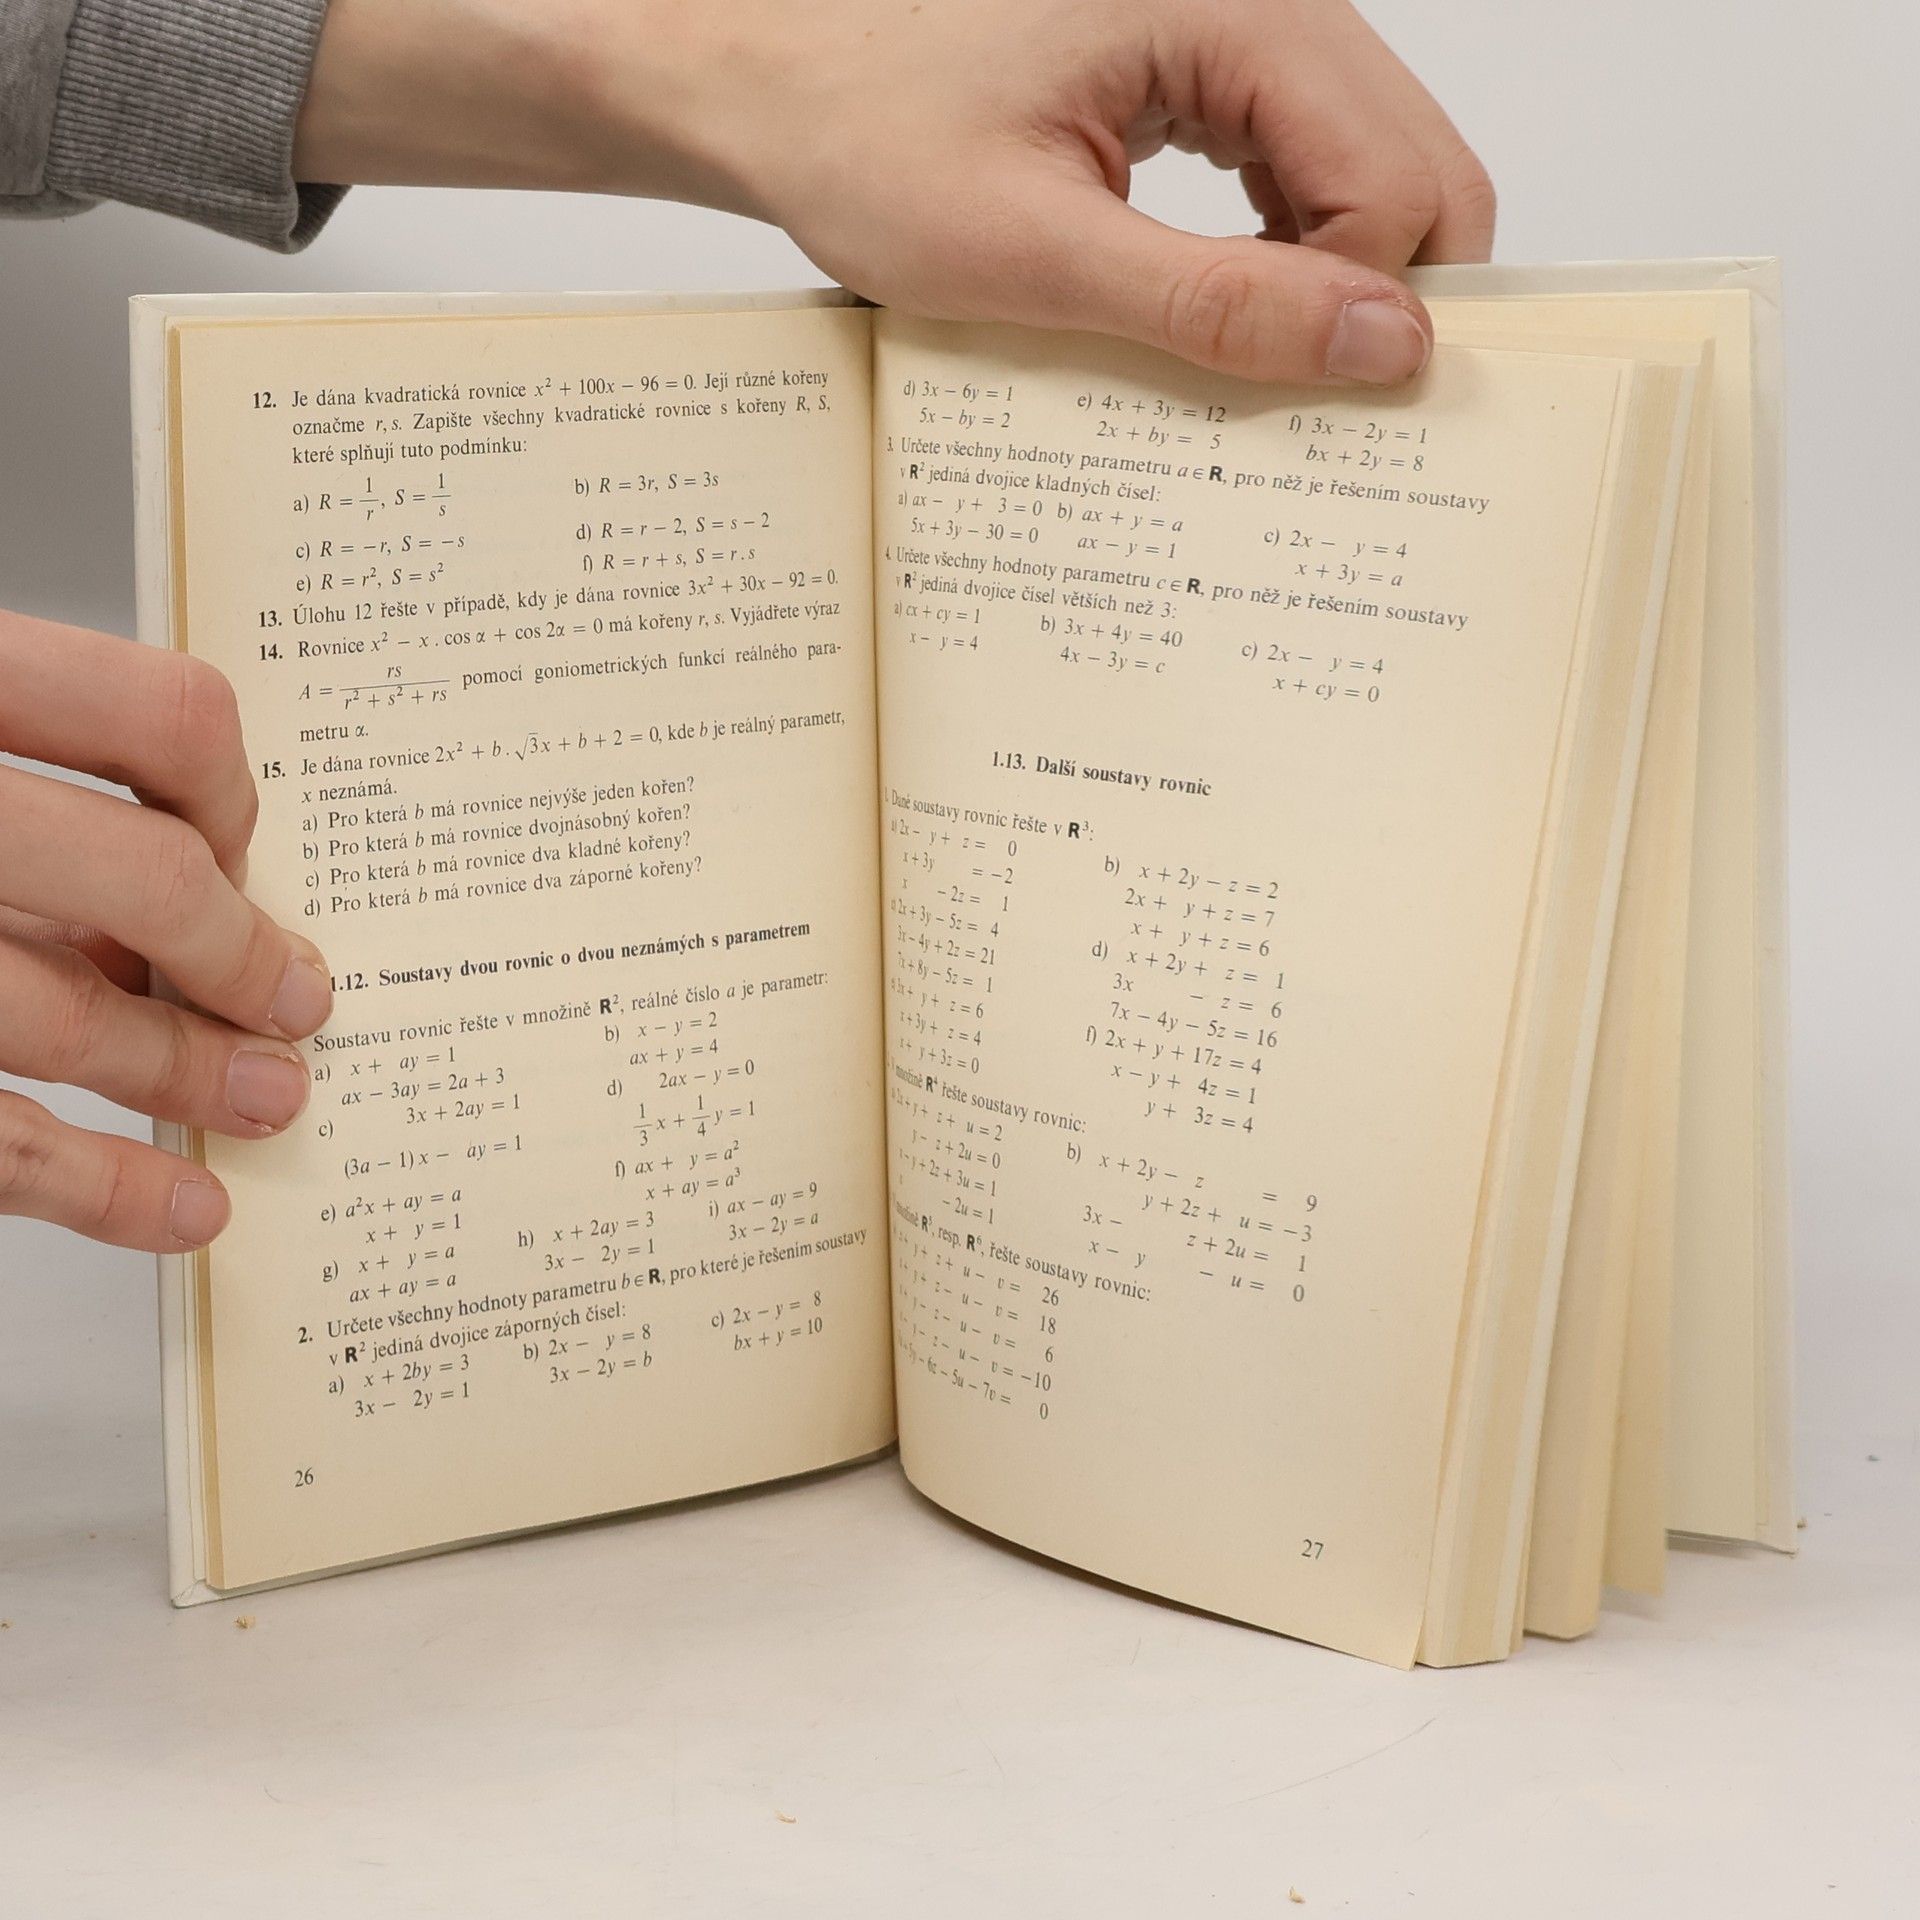 12. Je dána kvadratická rovnice x² + 100x − 96 = 0. Její různé kořeny
označme r, s. Zapište všechny kvadratické rovnice s kořeny R, S,
které splňují tuto podmínku:
a) R = 1/r, S = 1/s b) R = 3r, S = 3s
c) R = −r, S = −s d) R = r − 2, S = s − 2
e) R = r², S = s² f) R = r + s, S = r . s
13. Úlohu 12 řešte v případě, kdy je dána rovnice 3x² + 30x − 92 = 0.
14. Rovnice x² − x . cos α + cos 2α = 0 má kořeny r, s. Vyjádřete výraz
A = rs/(r² + s² + rs) pomocí goniometrických funkcí reálného para-
metru α.
15. Je dána rovnice 2x² + b . √3x + b + 2 = 0, kde b je reálný parametr,
x neznámá.
a) Pro která b má rovnice nejvýše jeden kořen?
b) Pro která b má rovnice dvojnásobný kořen?
c) Pro která b má rovnice dva kladné kořeny?
d) Pro která b má rovnice dva záporné kořeny?
1.12. Soustavy dvou rovnic o dvou neznámých s parametrem
Soustavu rovnic řešte v množině R², reálné číslo a je parametr:
a) x + ay = 1 b) x − y = 2
ax − 3ay = 2a + 3 ax + y = 4
c) 3x + 2ay = 1 d) 2ax − y = 0
(3a − 1)x − ay = 1 1/3 x + 1/4 y = 1
e) a²x + ay = a f) ax + y = a²
x + y = 1 x + ay = a³
g) x + y = a h) x + 2ay = 3 i) ax − ay = 9
ax + ay = a 3x − 2y = 1 3x − 2y = a
2. Určete všechny hodnoty parametru b ∈ R, pro které je řešením soustavy
v R² jediná dvojice záporných čísel:
a) x + 2by = 3 b) 2x − y = 8 c) 2x − y = 8
3x − 2y = 1 3x − 2y = b bx + y = 10
26
d) 3x − 6y = 1 e) 4x + 3y = 12 f) 3x − 2y = 1
5x − by = 2 2x + by = 5 bx + 2y = 8
3. Určete všechny hodnoty parametru a ∈ R, pro něž je řešením soustavy
v R² jediná dvojice kladných čísel:
a) ax − y + 3 = 0 b) ax + y = a c) 2x − y = 4
5x + 3y − 30 = 0 ax − y = 1 x + 3y = a
4. Určete všechny hodnoty parametru c ∈ R, pro něž je řešením soustavy
v R² jediná dvojice čísel větších než 3:
a) cx + cy = 1 b) 3x + 4y = 40 c) 2x − y = 4
x − y = 4 4x − 3y = c x + cy = 0
1.13. Další soustavy rovnic
1. Dané soustavy rovnic řešte v R³:
a) 2x − y + z = 0 b) x + 2y − z = 2
x + 3y = −2 2x + y + z = 7
x − 2z = 1 x + y + z = 6
c) 2x + 3y − 5z = 4 d) x + 2y + z = 1
3x − 4y + 2z = 21 3x − z = 6
7x + 8y − 5z = 1 7x − 4y − 5z = 16
e) 3x + y + z = 6 f) 2x + y + 17z = 4
x + 3y + z = 4 x − y + 4z = 1
x + y + 3z = 0 y + 3z = 4
množině R⁴ řešte soustavy rovnic:
2x + y + z + u = 2 b) x + 2y − z = 9
y − z + 2u = 0 y + 2z + u = −3
x − y + 2z + 3u = 1 3x − z + 2u = 1
− 2u = 1 x − y − u = 0
množině R⁵, resp. R⁶, řešte soustavy rovnic:
y + z + u − v = 26
y + z − u − v = 18
y − z − u − v = 6
y − z − u − v = −10
5y − 6z − 5u − 7v = 0
27